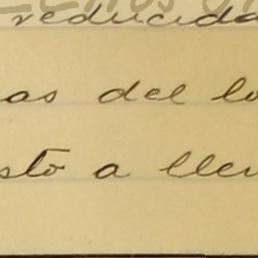 reducida
as del lo
sto a lle